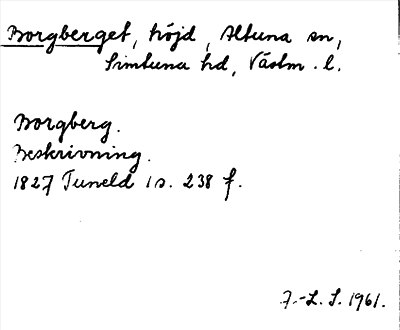 Borgberget, höjd, Altuna sn,
Simtuna hd, Västm. l.
Borgberg.
Beskrivning.
1827 Tuneld 1 s. 238 f.
F.-L. S. 1961.